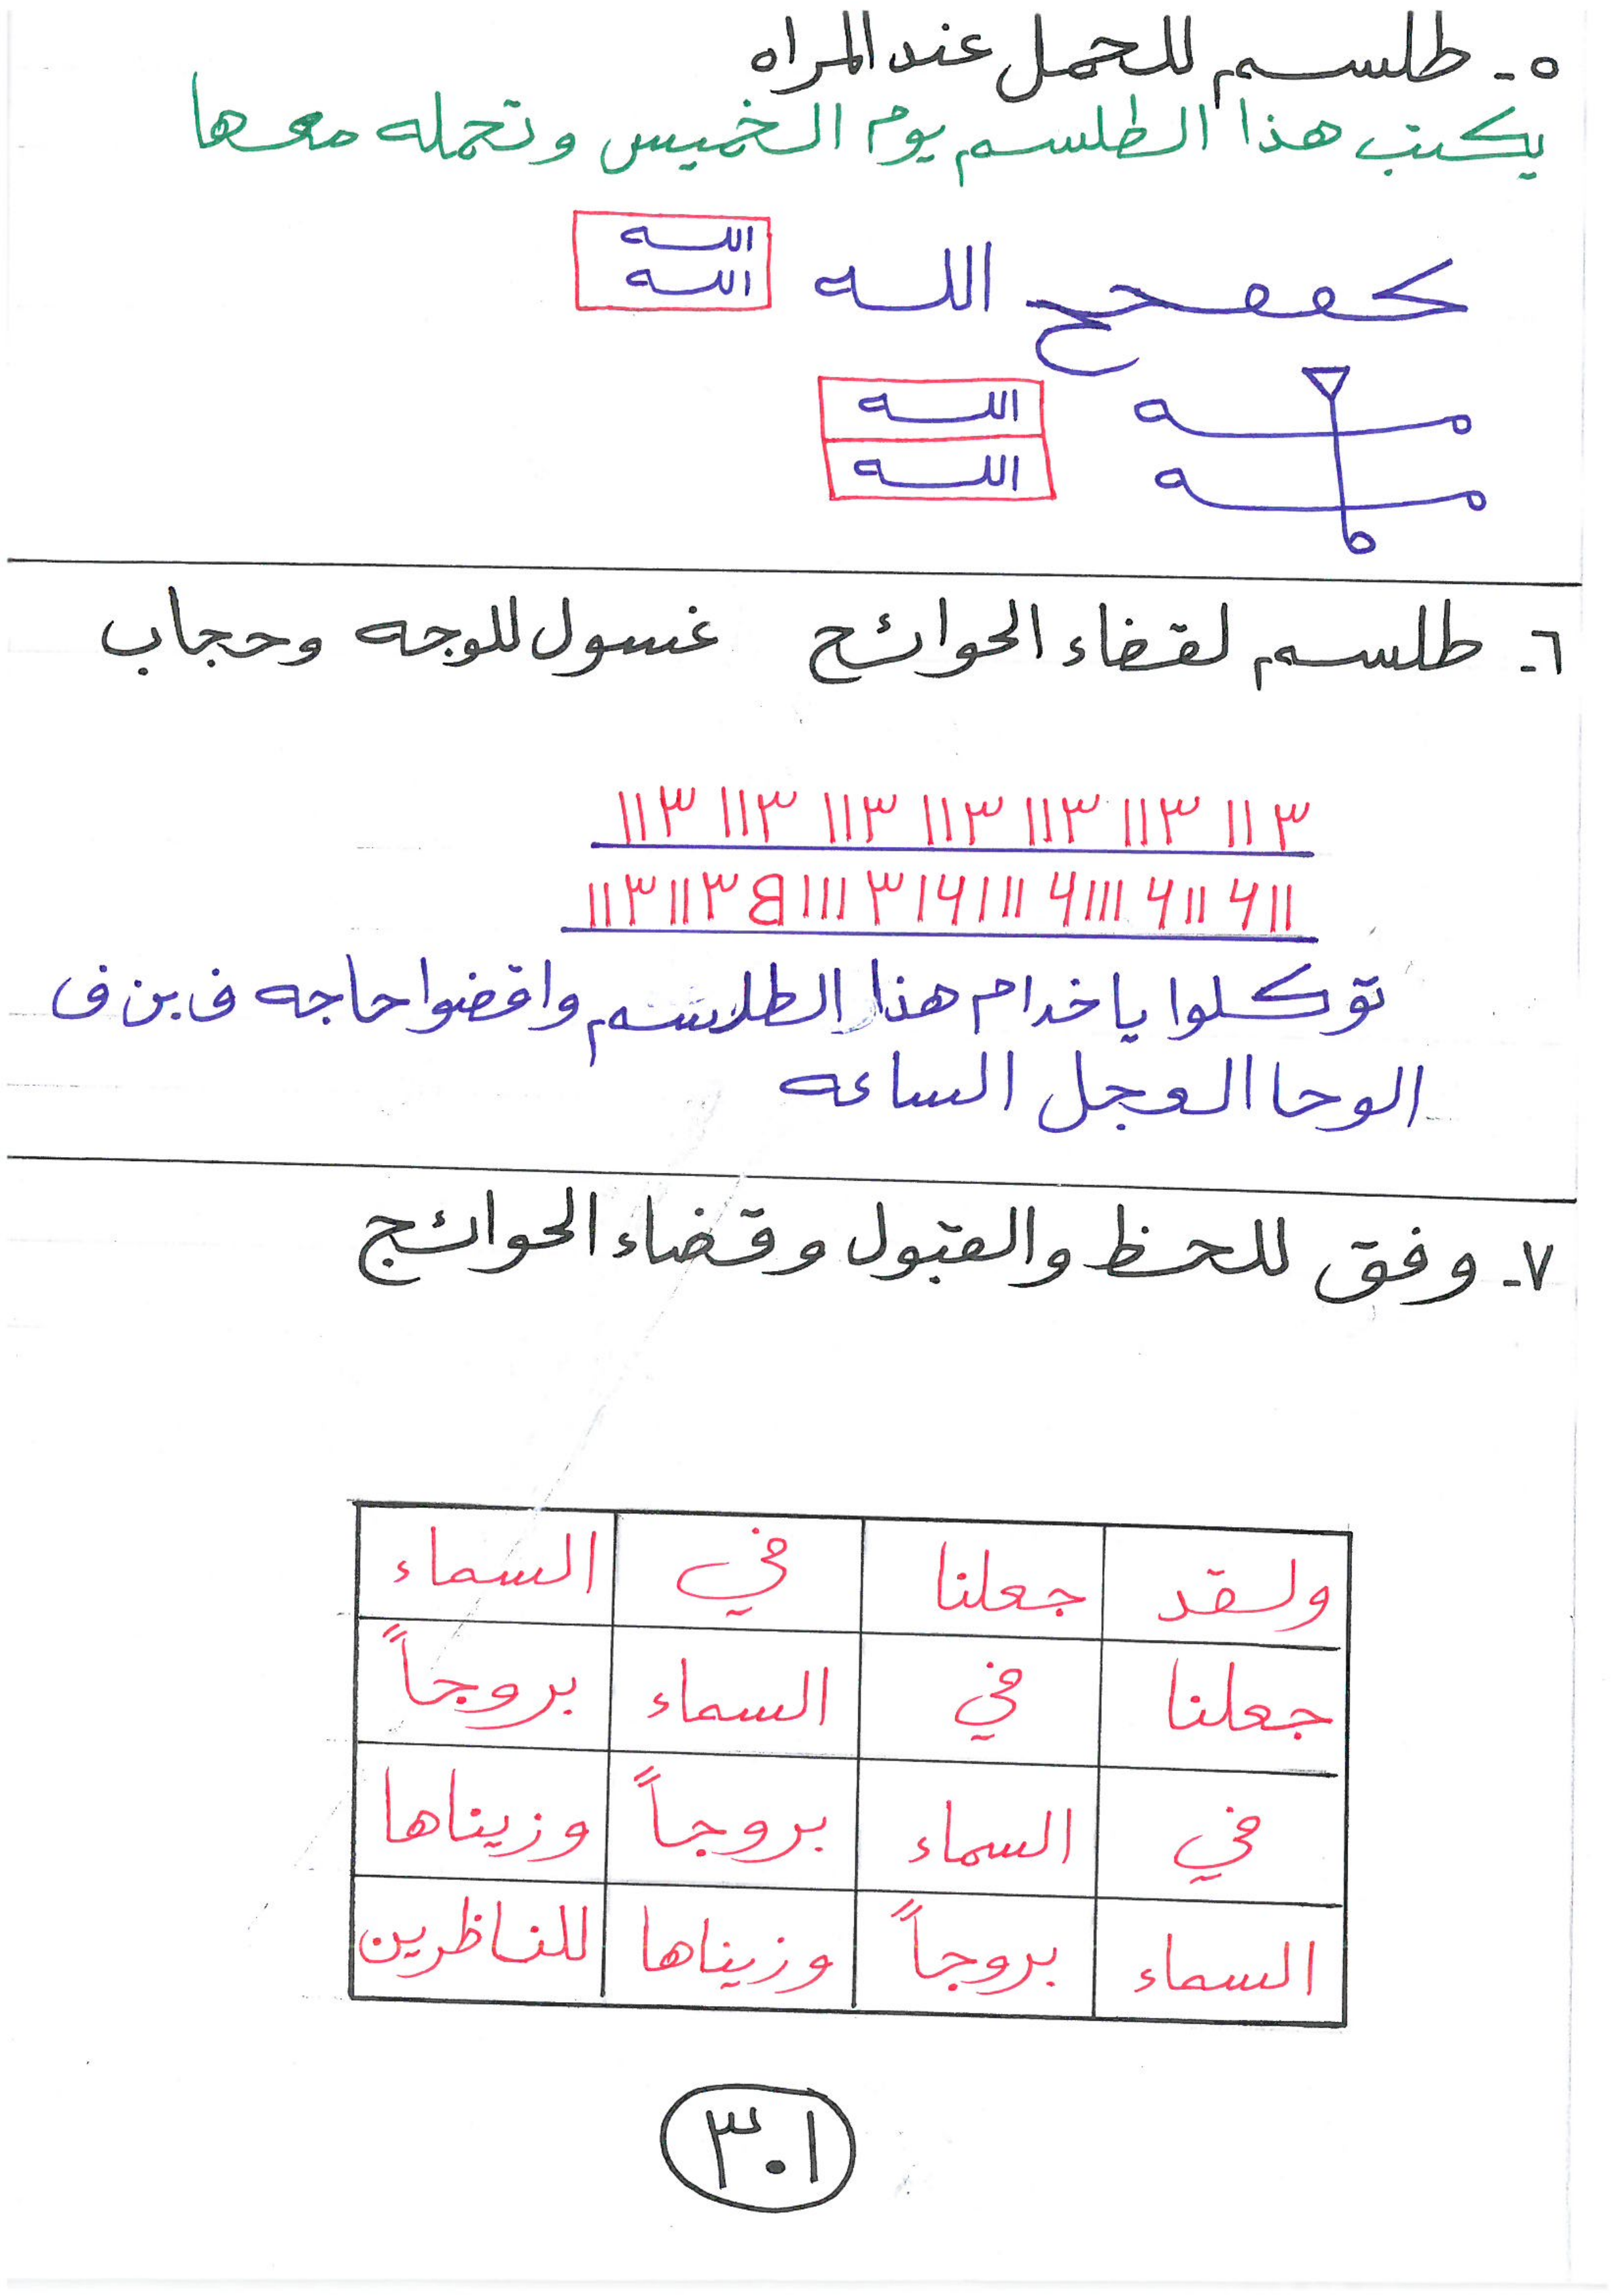 ٥ـ طلسم للحمل عند المراه
يكتب هذا الطلسم يوم الخميس وتحمله معها
الله الله
الله
الله
الله
٦ـ طلسم لقضاء الحوائج غسول للوجه وحجاب
١١٣ ١١٣ ١١٣ ١١٣ ١١٣ ١١٣ ١١٣
توكلوا ياخدام هذا الطلسم واقضوا حاجه ف بن ف
الوحا العجل الساعه
٧ـ وفق للحظ والقبول وقضاء الحوائج
ولقد جعلنا في السماء
جعلنا في السماء بروجاً
في السماء بروجاً وزيناها
السماء بروجاً وزيناها للناظرين
٣٠١